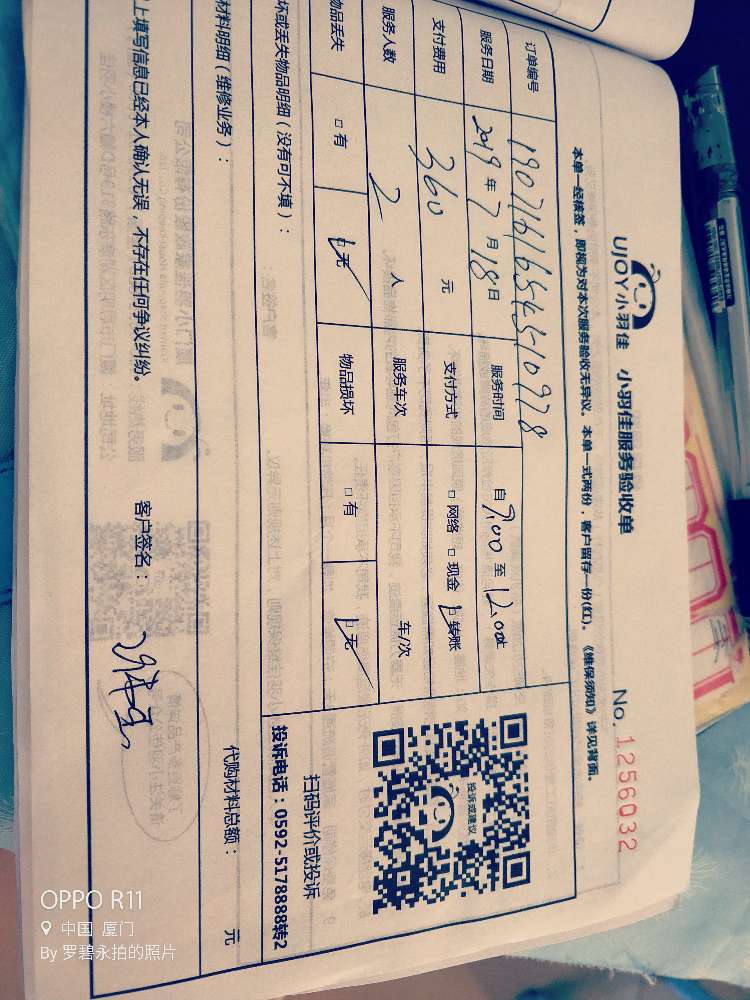 UJOY小羽佳 小羽佳服务验收单
No. 1256032
本单一经核签，即视为对本次服务验收无异议。本单一式两份，客户留存一份(红)。《维保须知》详见背面。
订单编号 1907161654510978
服务日期 2019年7月18日 服务时间 自9:00至12:00
支付费用 360 元 支付方式 □网络 □现金 □转账
服务人数 2 人 服务车次 车/次
物品丢失 □有 □无 物品损坏 □有 □无
投诉或建议
扫码评价或投诉
投诉电话：0592-5178888转2
坏或丢失物品明细（没有可不填）：
材料明细（维修业务）：
代购材料总额： 元
上填写信息已经本人确认无误，不存在任何争议纠纷。 客户签名：
OPPO R11
中国 厦门
By 罗碧永拍的照片